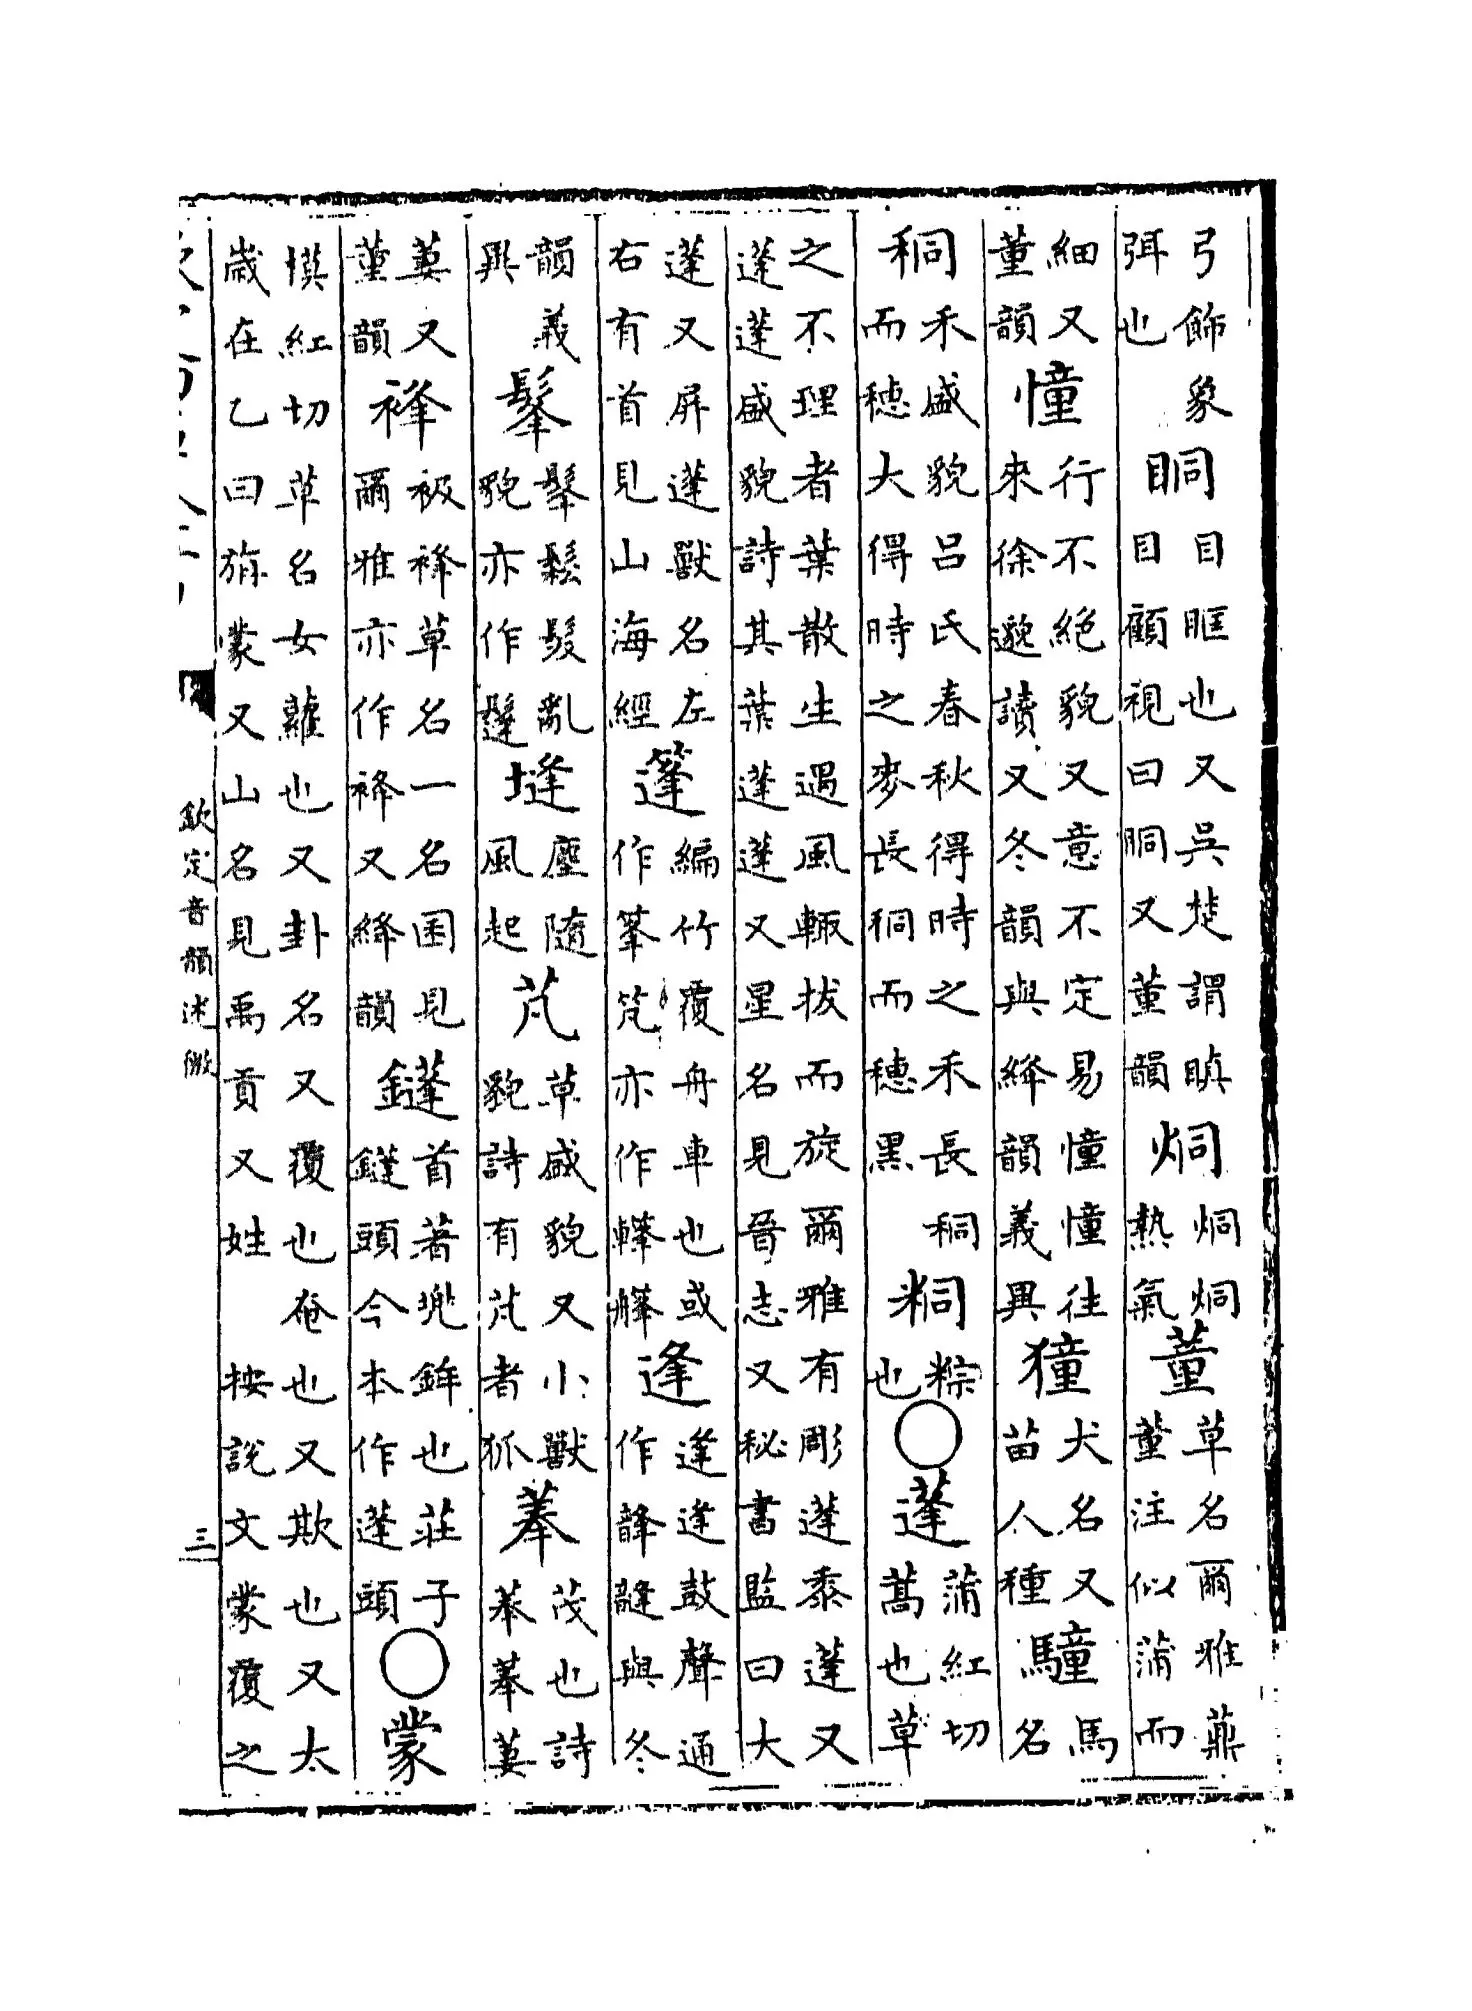 弓飾象弭也眮目眶也又吳楚謂瞋目顧視曰眮又董韻烔烔烔熱氣董草名爾雅薡董注似蒲而
細又董韻憧行不絕貌又意不定易憧憧往來徐邈讀又冬韻與絳韻義異獞犬名又苗人種𩦍馬名
秱禾盛貌呂氏春秋得時之禾長秱而穗大得時之麥長秱而穗黑粡粽也○蓬蒲紅切蒿也草
之不理者葉散生遇風輒拔而旋爾雅有彫蓬黍蓬又蓬蓬盛貌詩其葉蓬蓬又星名見晉志又秘書監曰大
蓬又屏蓬獸名左右有首見山海經篷編竹覆舟車也或作亦作逢逢逢鼓聲通作韸韼與冬
韻義異髼髼鬆髮亂貌亦作鬔塳塵隨風起芃草盛貌又小獸貌詩有芃者狐菶茂也詩菶菶萋
萋又董韻袶袶草名一名囷見爾雅亦作又絳韻鑝首著兜鉾也莊子鑝頭今本作蓬頭○蒙
模紅切草名女蘿也又卦名又覆也奄也又欺也又太歲在乙曰旃蒙又山名見禹貢又姓 按說文蒙覆之
欽定音韻述微
三